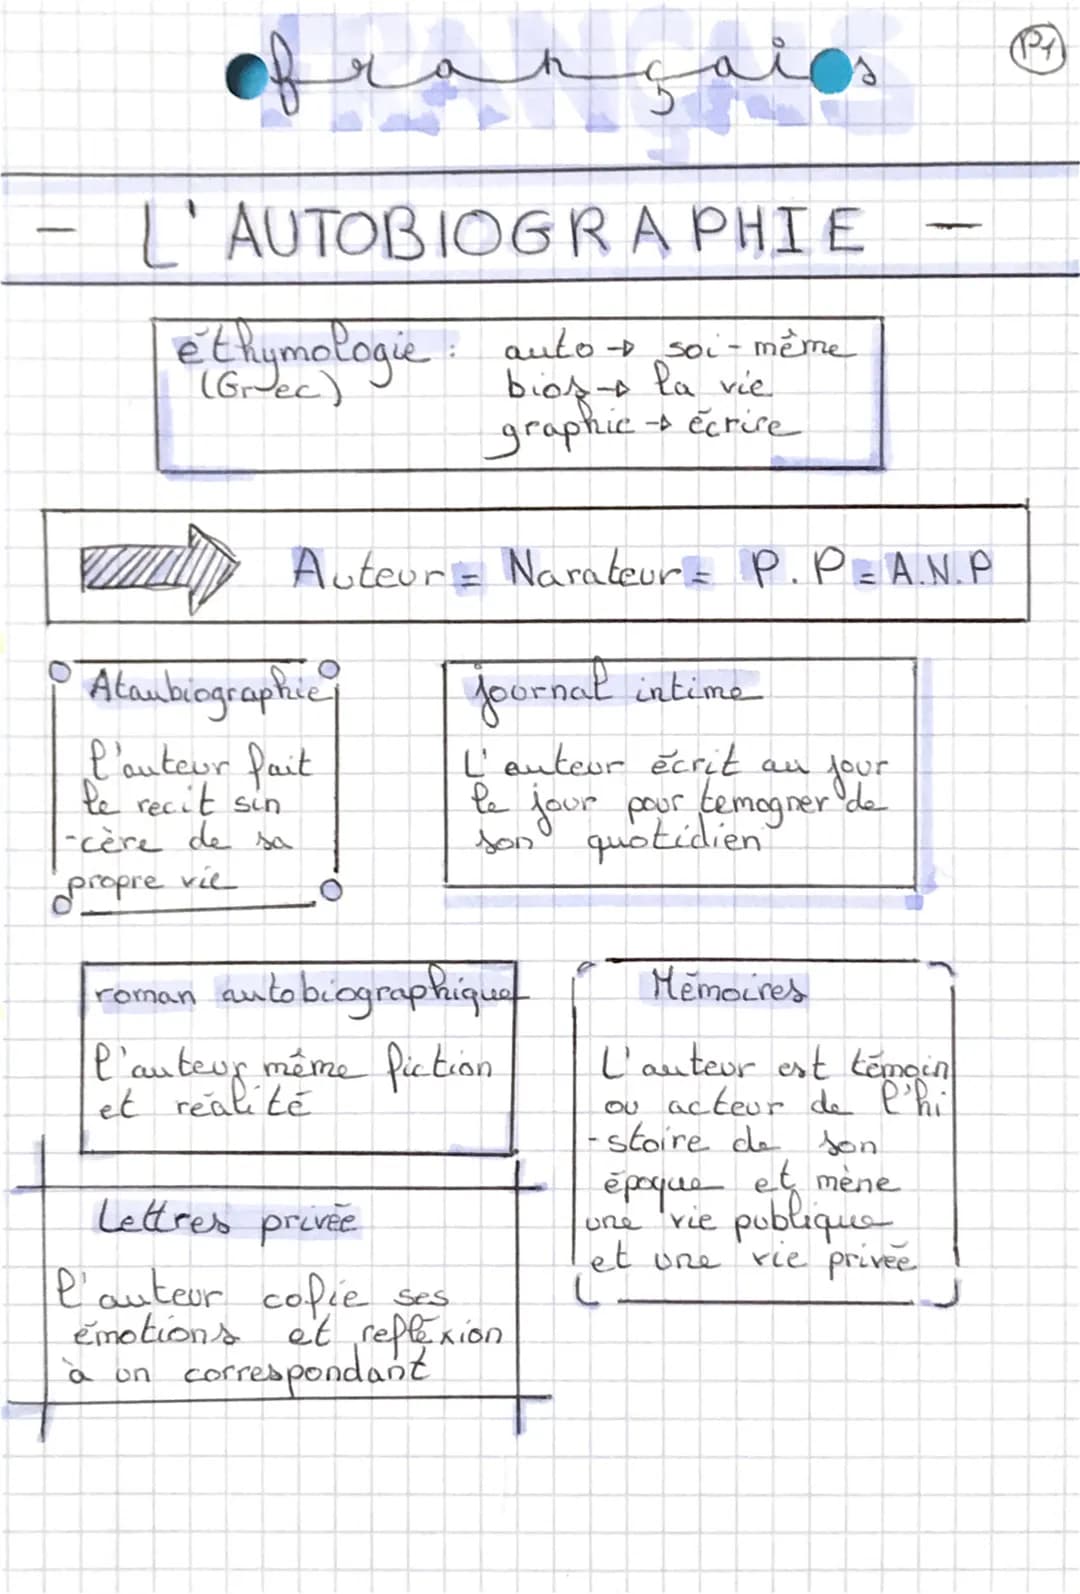 FRANÇAIS
français
P1
- L'AUTOBIOGRAPHIE -
éthymologie : auto → soi-même
(Grec) bios → la vie
graphie → écrire
Auteur = Narateur = P.P = A.N.P
Ataubiographie
l'auteur fait
le recit sin
-cère de sa
propre vie
journal intime
L'auteur écrit au jour
le jour pour temogner de
son quotidien
roman autobiographique
l'auteur même fiction
et réalité
Mémoires
L'auteur est témoin
ou acteur de l'hi
-stoire de son
époque et mène
une vie publique
et une vie privée
Lettres privée
l'auteur cofie ses
émotions et refléxion
à un correspondant